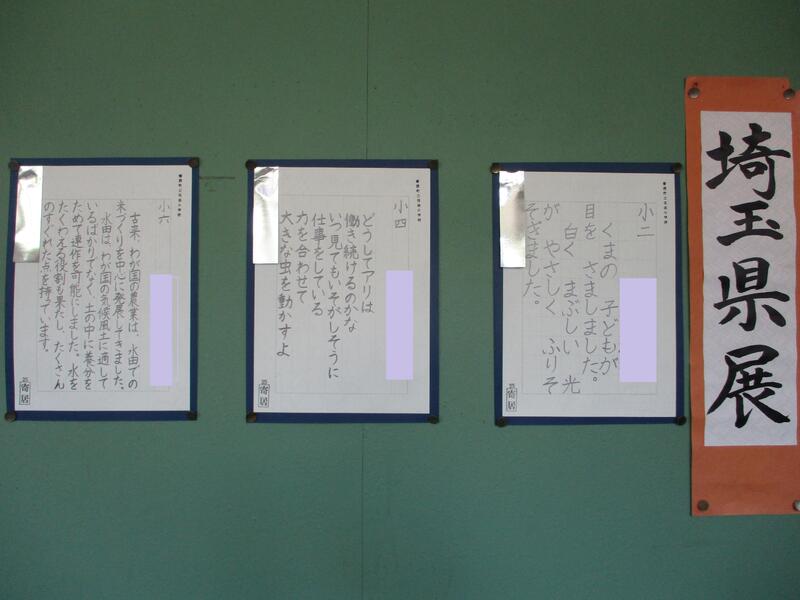 埼玉県展
小二
くまの 子どもが
目を さましました。
白く まぶしい 光
が やさしく ふりそ
そぎました。
寄居
小四
どうしてアリは
働き続けるのかな
いつ見てもいそがしそうに
仕事をしている
力を合わせて
大きな虫を動かすよ
寄居
小六
古来、わが国の農業は、水田での
米づくりを中心に発展してきました。
水田は、わが国の気候風土に適して
いるばかりでなく、土の中に養分を
ためて連作を可能にしました。水を
たくわえる役割も果たし、たくさん
のすぐれた点を持っています。
寄居